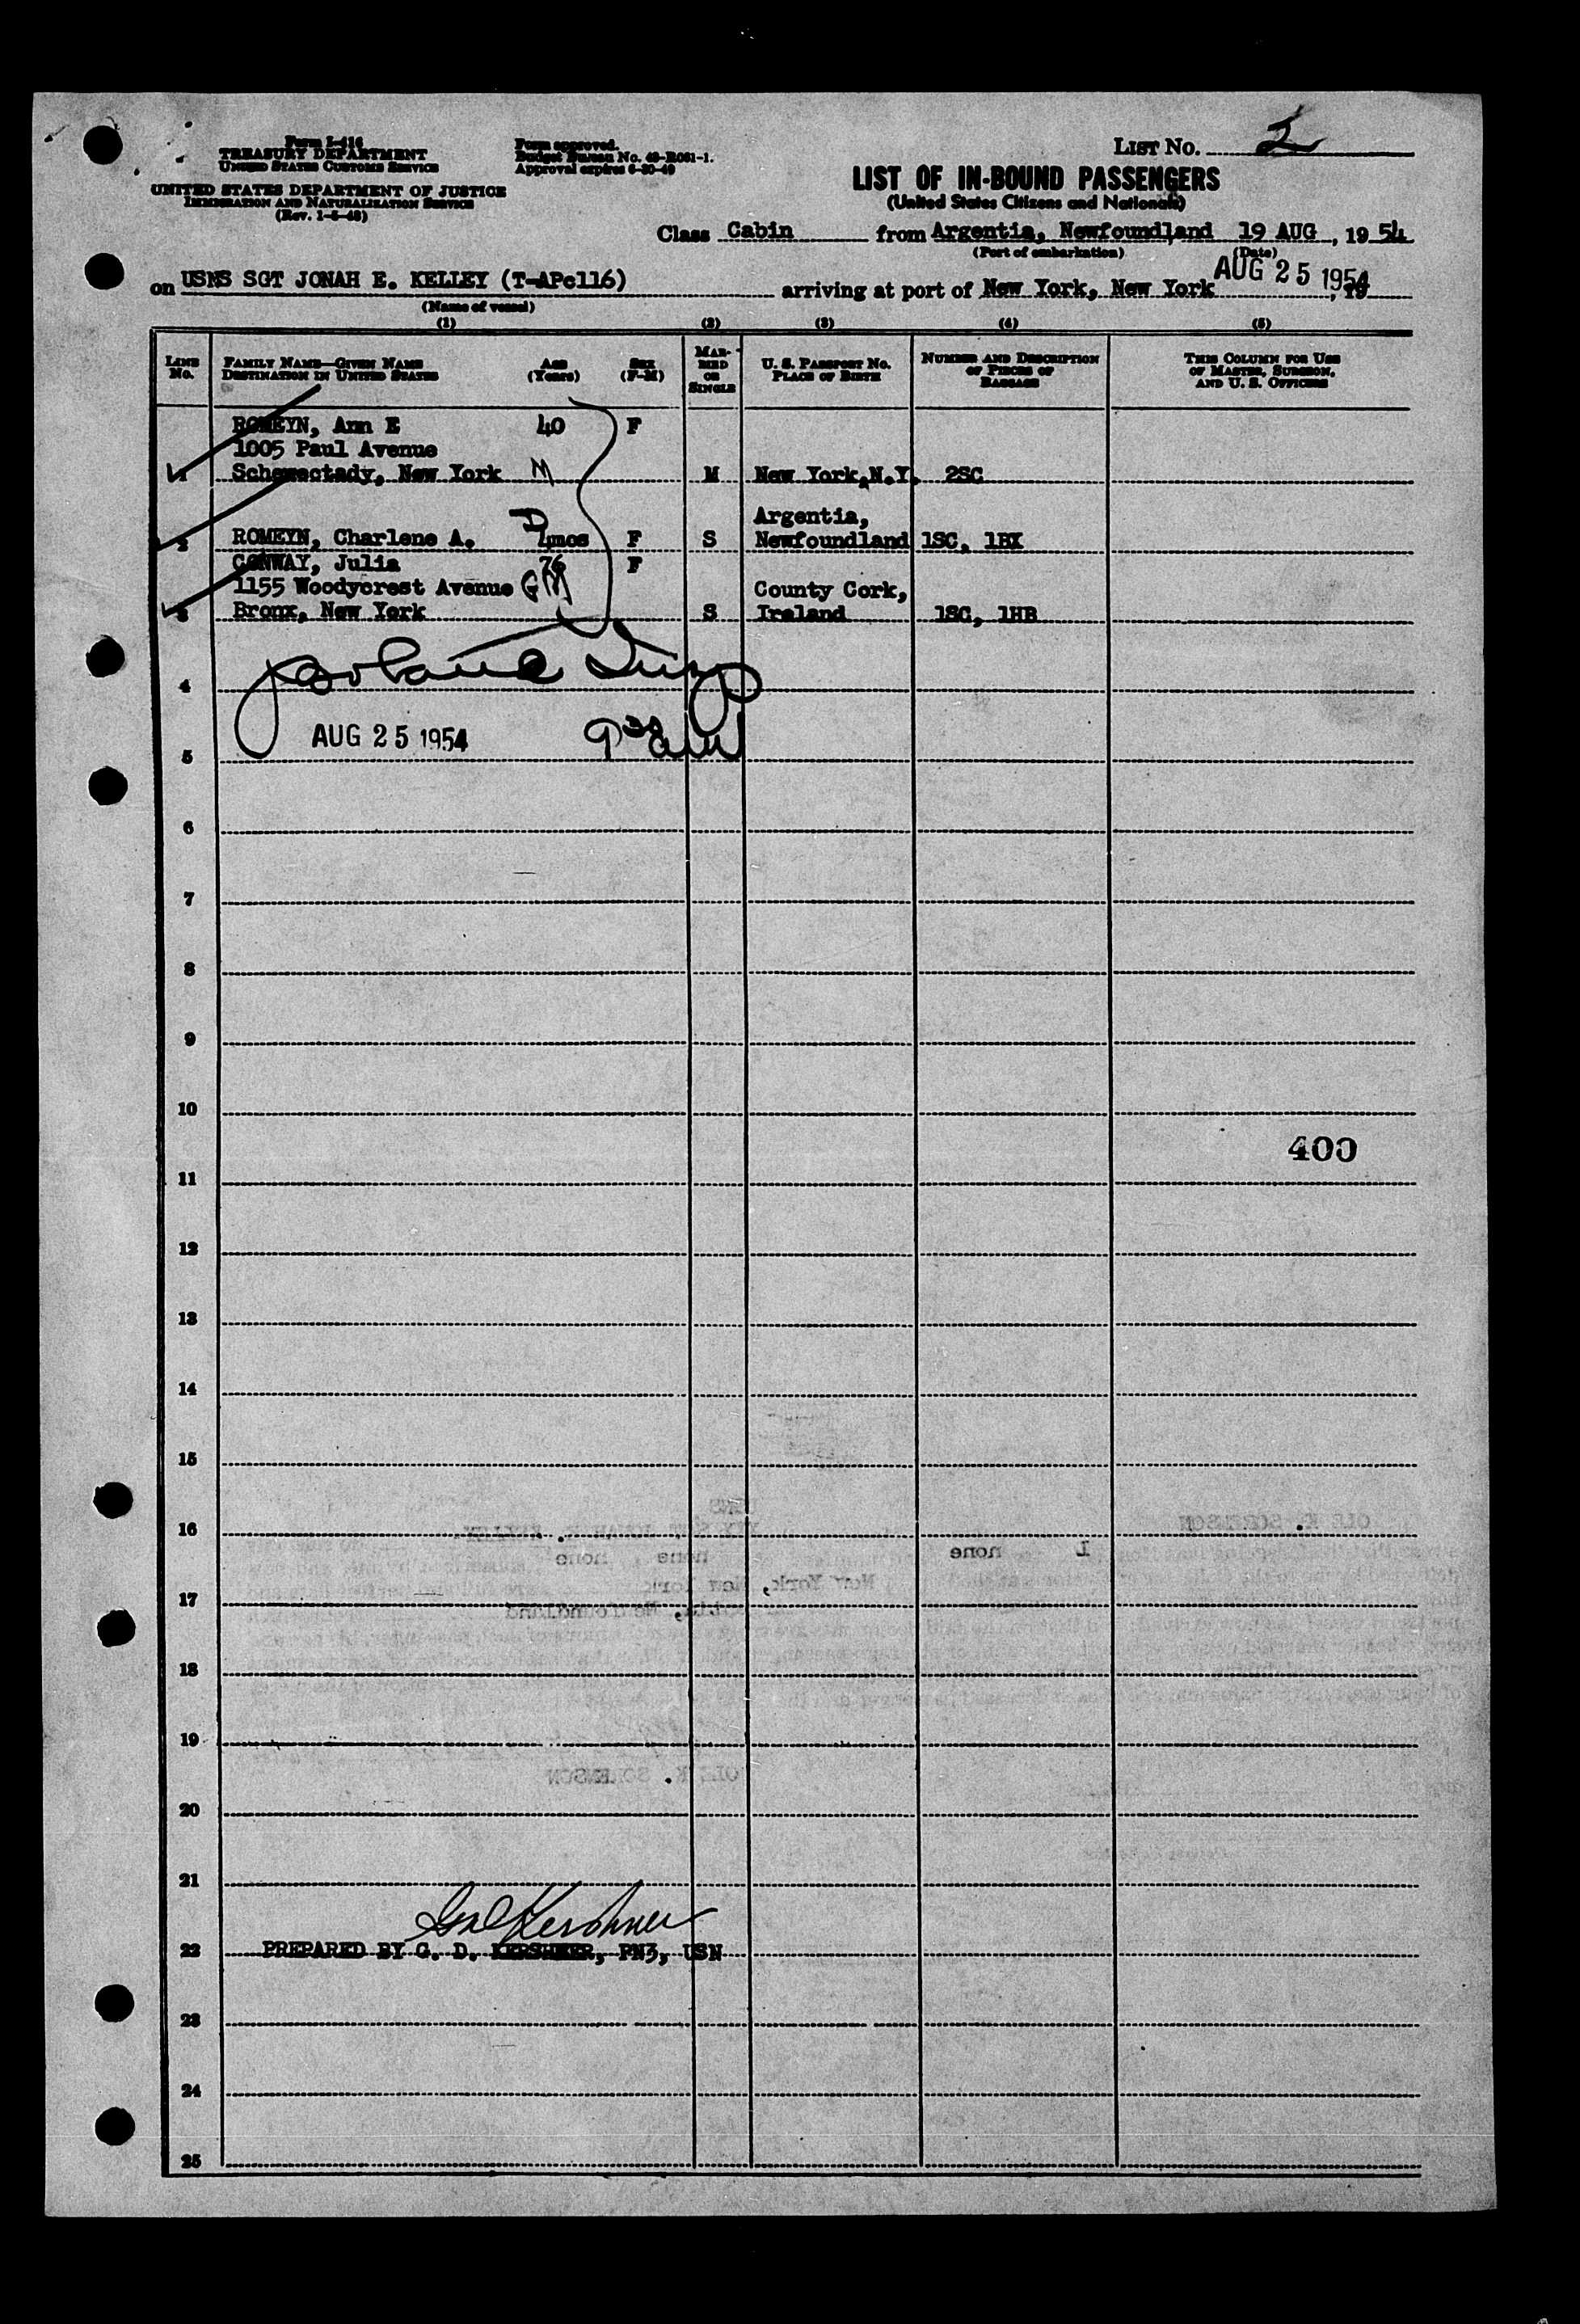 Form I-416
TREASURY DEPARTMENT
UNITED STATES CUSTOMS SERVICE
UNITED STATES DEPARTMENT OF JUSTICE
IMMIGRATION AND NATURALIZATION SERVICE
(Rev. 1-5-48)
Form approved.
Budget Bureau No. 43-R051-1.
Approval expires 6-30-49
LIST NO. 2
LIST OF IN-BOUND PASSENGERS
(United States Citizens and Nationals)
Class Cabin from Argentia, Newfoundland 19 AUG, 1954
(Port of embarkation) (Date)
on USNS SGT JONAH E. KELLEY (T-APc116) arriving at port of New York, New York AUG 25 1954, 19
(Name of vessel)
(1) (2) (3) (4) (5)
LINE No. FAMILY NAME—GIVEN NAME DESTINATION IN UNITED STATES AGE (Years) SEX (F-M) MARRIED OR SINGLE U. S. PASSPORT NO. PLACE OF BIRTH NUMBER AND DESCRIPTION OF PIECES OF BAGGAGE THIS COLUMN FOR USE OF MASTER, SURGEON, AND U. S. OFFICERS
ROMEYN, Ann E 40 F
1005 Paul Avenue
1 Schenectady, New York M M New York, N.Y. 2SC
D Argentia,
2 ROMEYN, Charlene A. mos F S Newfoundland 1SC, 1BX
CONWAY, Julia 76 F
1155 Woodycrest Avenue GM County Cork,
3 Bronx, New York S Ireland 1SC, 1HB
4
AUG 25 1954 9 30 am
5
6
7
8
9
10
400
11
12
13
14
15
16
17
18
19
20
21
22 PREPARED BY G. D. KERSHNER, PN3, USN
23
24
25